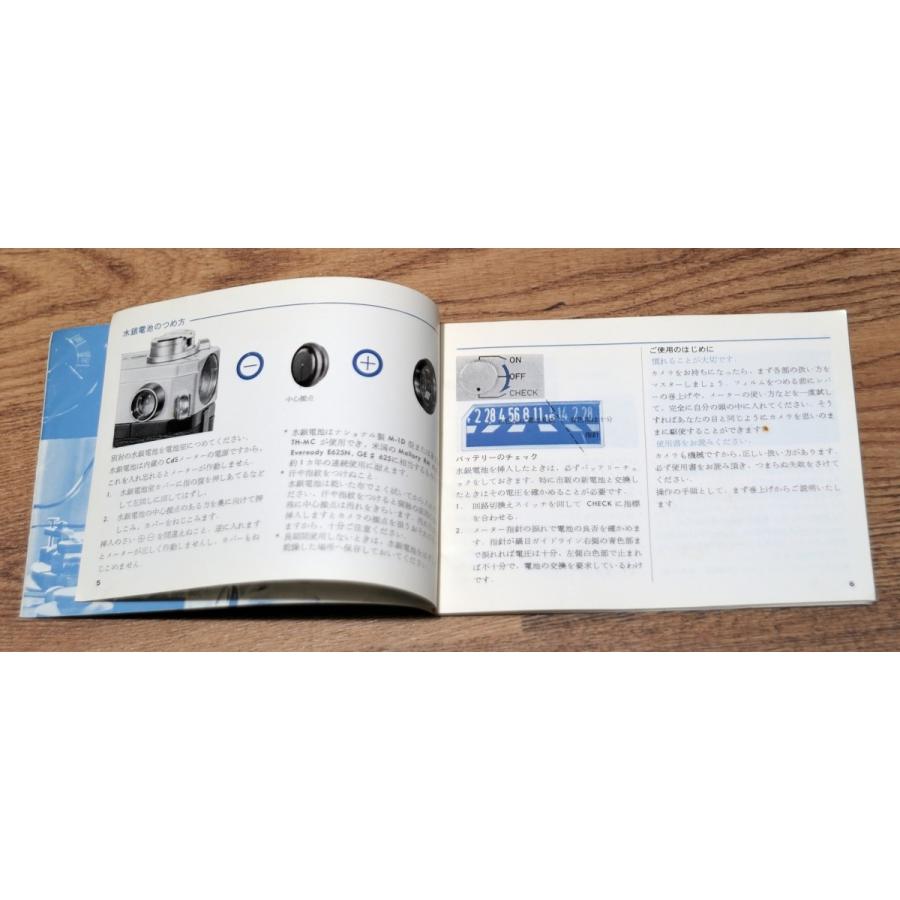 水銀電池のつめ方
中心接点
別封の水銀電池を電池室につめてください。
水銀電池は内蔵のCdSメーターの電源ですから、
これを入れ忘れるとメーターが作動しません。
1. 水銀電池室カバーに指の腹を押しあてるなど
して左回しに回してはずし、
2. 水銀電池の中心接点のある方を奥に向けて押
しこみ、カバーをねじこみます。
挿入のさい⊕⊖を間違えぬこと。逆に入れます
とメーターが正しく作動しませんし、カバーもね
じこめません。
5
* 水銀電池はナショナル製 M-1D 型または
TH-MC が使用でき、米国の Mallory
Eveready E625N, GE 625に相当する
約1カ年の連続使用に耐えます。
* 汗や指紋をつけぬこと
水銀電池は乾いた布でよく拭してから
ださい。汗や指紋をつけ
挿入しますとカメラの接点を損うおそれ
ますから、十分ご注意ください。
* 長期間使用しないときは、水銀電池を
乾燥した場所へ保存しておいてください。
ON
OFF
CHECK
4 2 28 4 56 8 11 16
バッテリーのチェック
水銀電池を挿入したときは、必ずバッテリーチェ
ックをしておきます。特に市販の新電池と交換し
たときはその電圧を確かめることが必要です。
1. 回路切換えスイッチを回して CHECK に指標
を合わせる。
2. メーター指針の振れで電池の良否を確かめま
す。指針が橫目ガイドライン右側の青色部ま
で振れれば電圧は十分、左側白色部で止まれ
ば不十分で、電池の交換を要求しているわけ
です。
ご使用のはじめに
慣れることが大切です。
カメラをお持ちになったら、まず各部の扱い方を
マスターしましょう。フィルムをつめる前にレバ
ーの巻上げや、メーターの使い方などを一度試し
て、完全に自分の頭の中に入れてください。そう
すればあなたの目と同じようにカメラを思いのま
まに駆使することができます。
使用書をお読みください。
カメラも機械ですから、正しい扱い方があります。
必ず使用書をお読み頂き、つまらぬ失敗をさけて
ください。
操作の手順として、まず巻上げからご説明いたし
ます
6